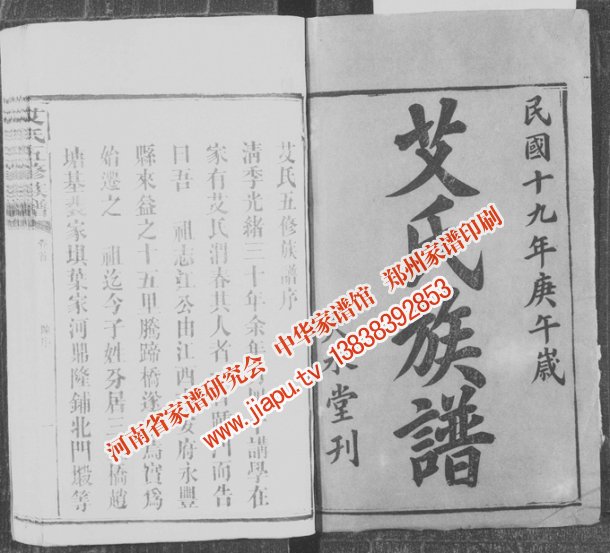 民國十九年庚午歲
艾氏族譜
堂刊
艾氏五修族譜序
清季光緒三十年余年
講學在
家有艾氏渭春其人者
而告
曰吾 祖志江公由江西
府永豐
縣來益之十五甲騰蹄橋
為實為
始遷之 祖迄今子姓分居三
橋趙
塘基裴家埧葉家河鼎隆鋪北門塅等
艾氏五修族譜
卷首
河南省家谱研究会 中华家谱馆 郑州家谱印刷
www.jiapu.tv 13838392853